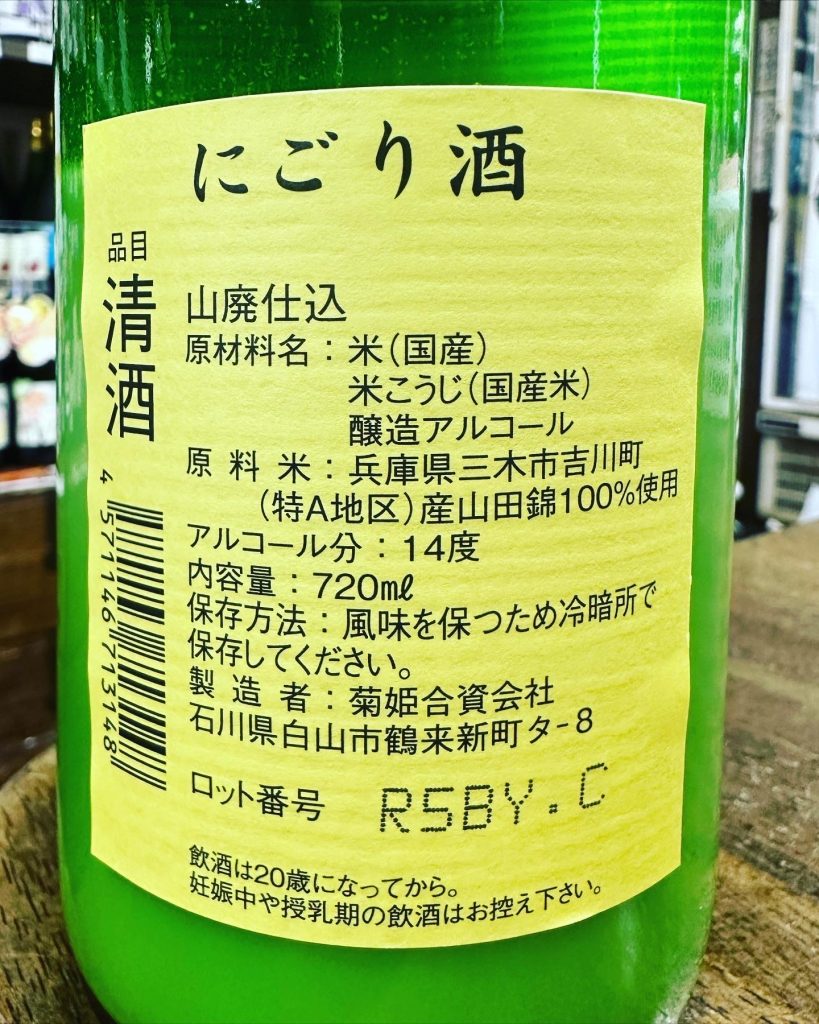 にごり酒
品目
清酒
山廃仕込
原材料名：米（国産）
米こうじ（国産米）
醸造アルコール
原料米：兵庫県三木市吉川町
（特A地区）産山田錦100%使用
アルコール分：14度
内容量：720㎖
保存方法：風味を保つため冷暗所で
保存してください。
製造者：菊姫合資会社
石川県白山市鶴来新町タ-8
4571146713148
ロット番号 R5BY.C
飲酒は20歳になってから。
妊娠中や授乳期の飲酒はお控え下さい。